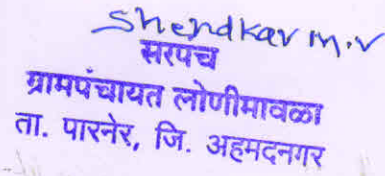 Shendkar m.v
सरपंच
ग्रामपंचायत लोणीमावळा
ता. पारनेर, जि. अहमदनगर